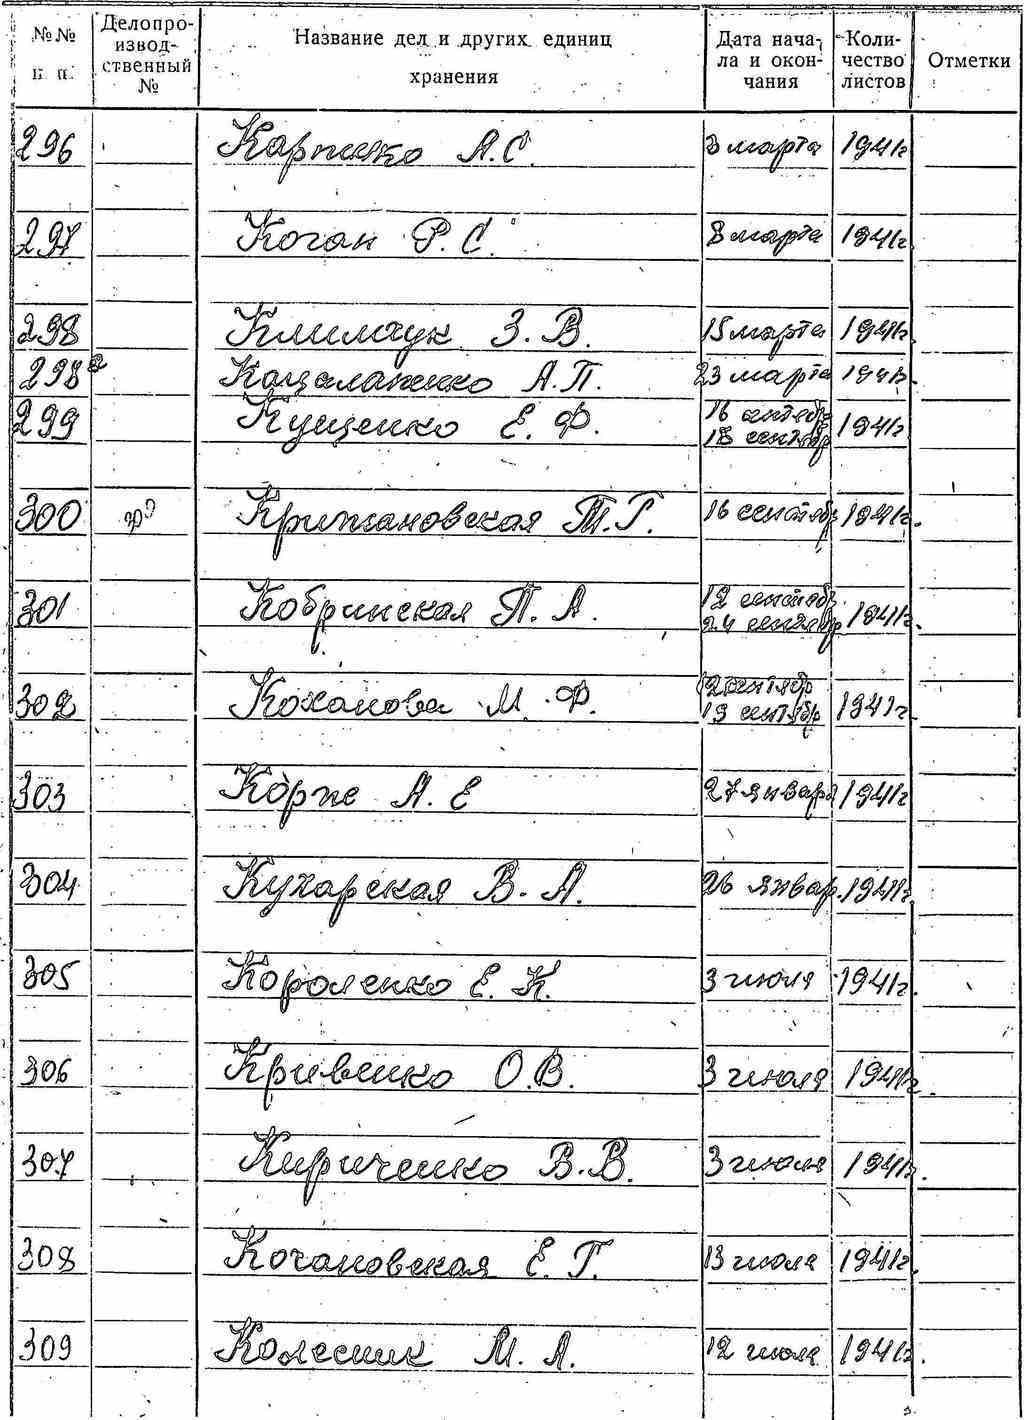 №№ п. п.
Делопроизводственный №
Название дел и других единиц хранения
Дата начала и окончания
Количество листов
Отметки
296 Карпико А.С. 8 марта 1941г
297 Коган Р.С. 8 марта 1941г
298 Климчук З.В. 15 марта 1941г.
298а А.П. 23 марта 1941г.
299 Кущенко Е.Ф. 16 сентябр 18 сентябр 1941г
300 300 Крижановская Т.Г. 16 сентябр 1941г.
301 Кобринская П.А. 12 сентябр 24 сентябр 1941г.
302 Коханова М.Ф. 12 сентябр 19 сентябр 1941г.
303 Корже А.Е 27 января 1941г
304 Кухарская В.А. 26 январ. 1941г.
305 Короленко Е.К. 3 июля 1941г.
306 Кривенко О.В. 3 июля 1941г.
307 Кириченко В.В. 3 июля 1941г.
308 Качановская Е.Г. 13 июля 1941г.
309 Колесник М.А. 12 июля 1941г.